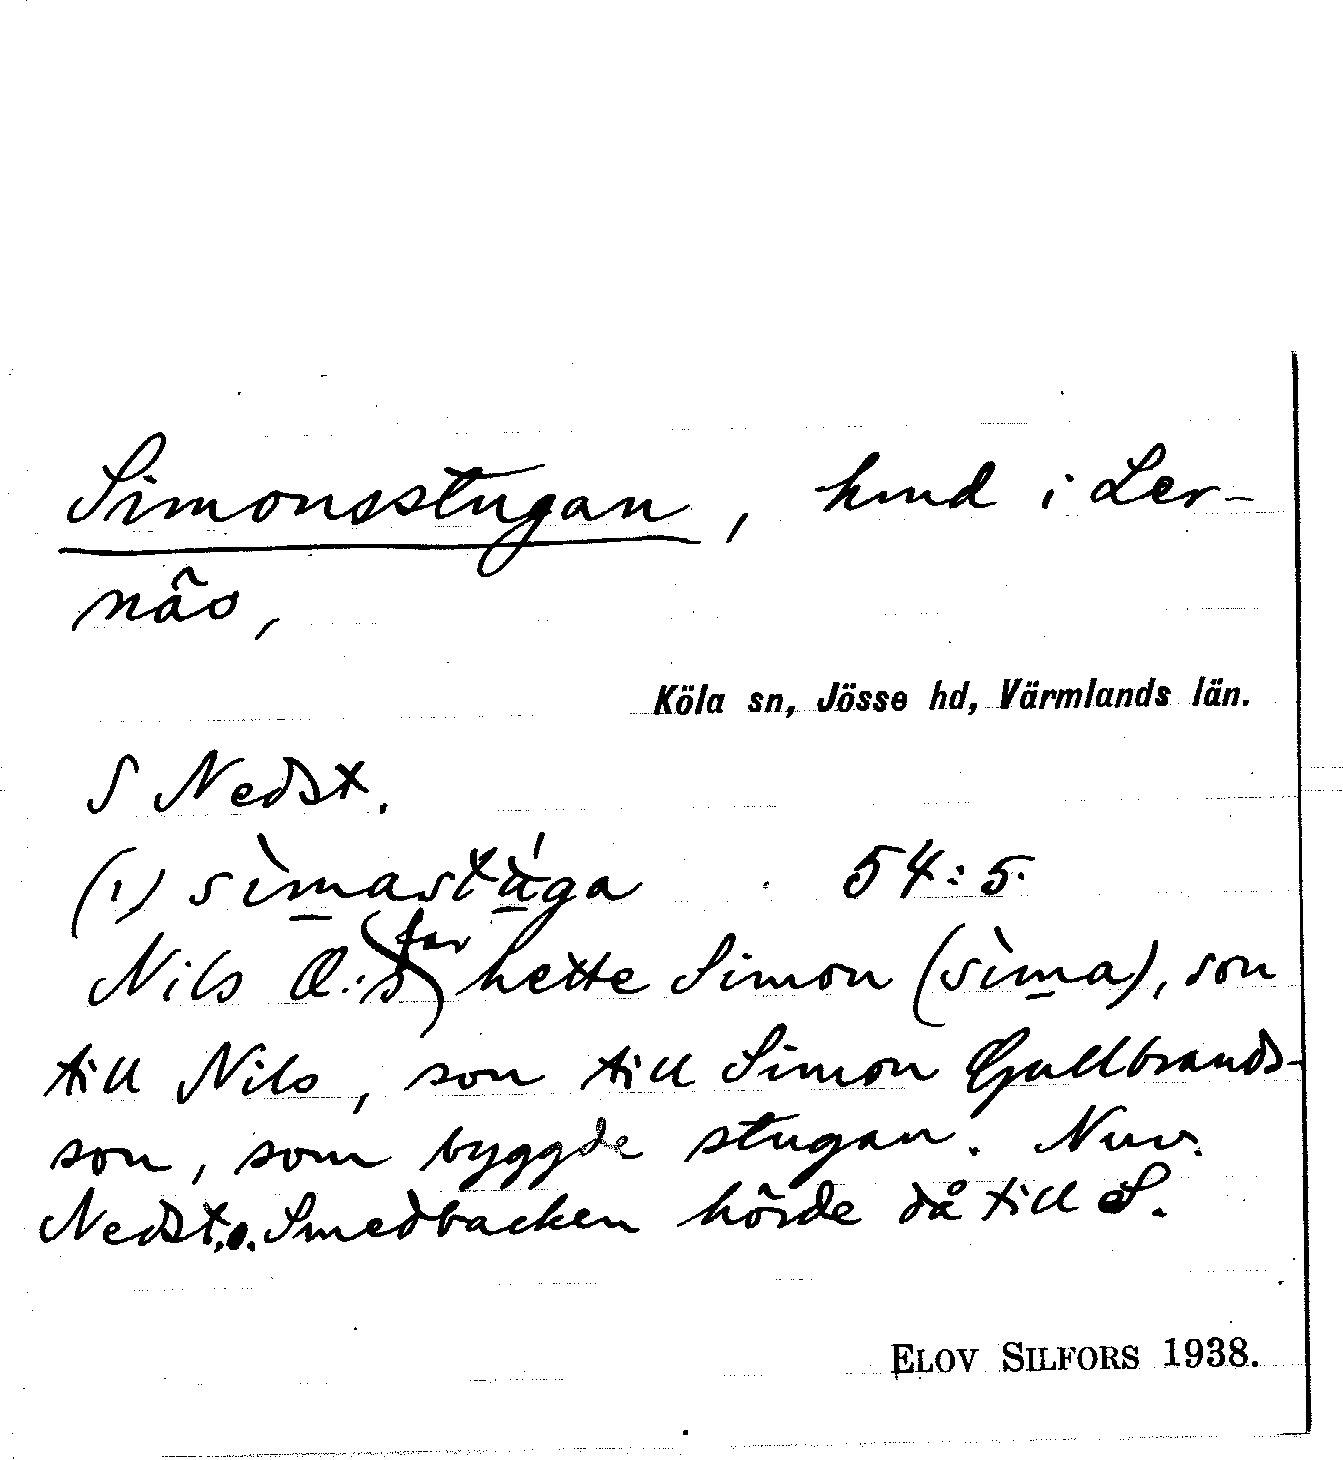 Simonsstugan, hmd i Ler-
näs,
Köla sn, Jösse hd, Värmlands län.
S Nedst.
(1) sìmastä́ga 54:5.
Nils O:s far hette Simon (sìma), son
till Nils, son till Simon Gullbrands-
son, som byggde stugan. Nuv.
Nedst. o. Smedbacken hörde då till S.
ELOV SILFORS 1938.